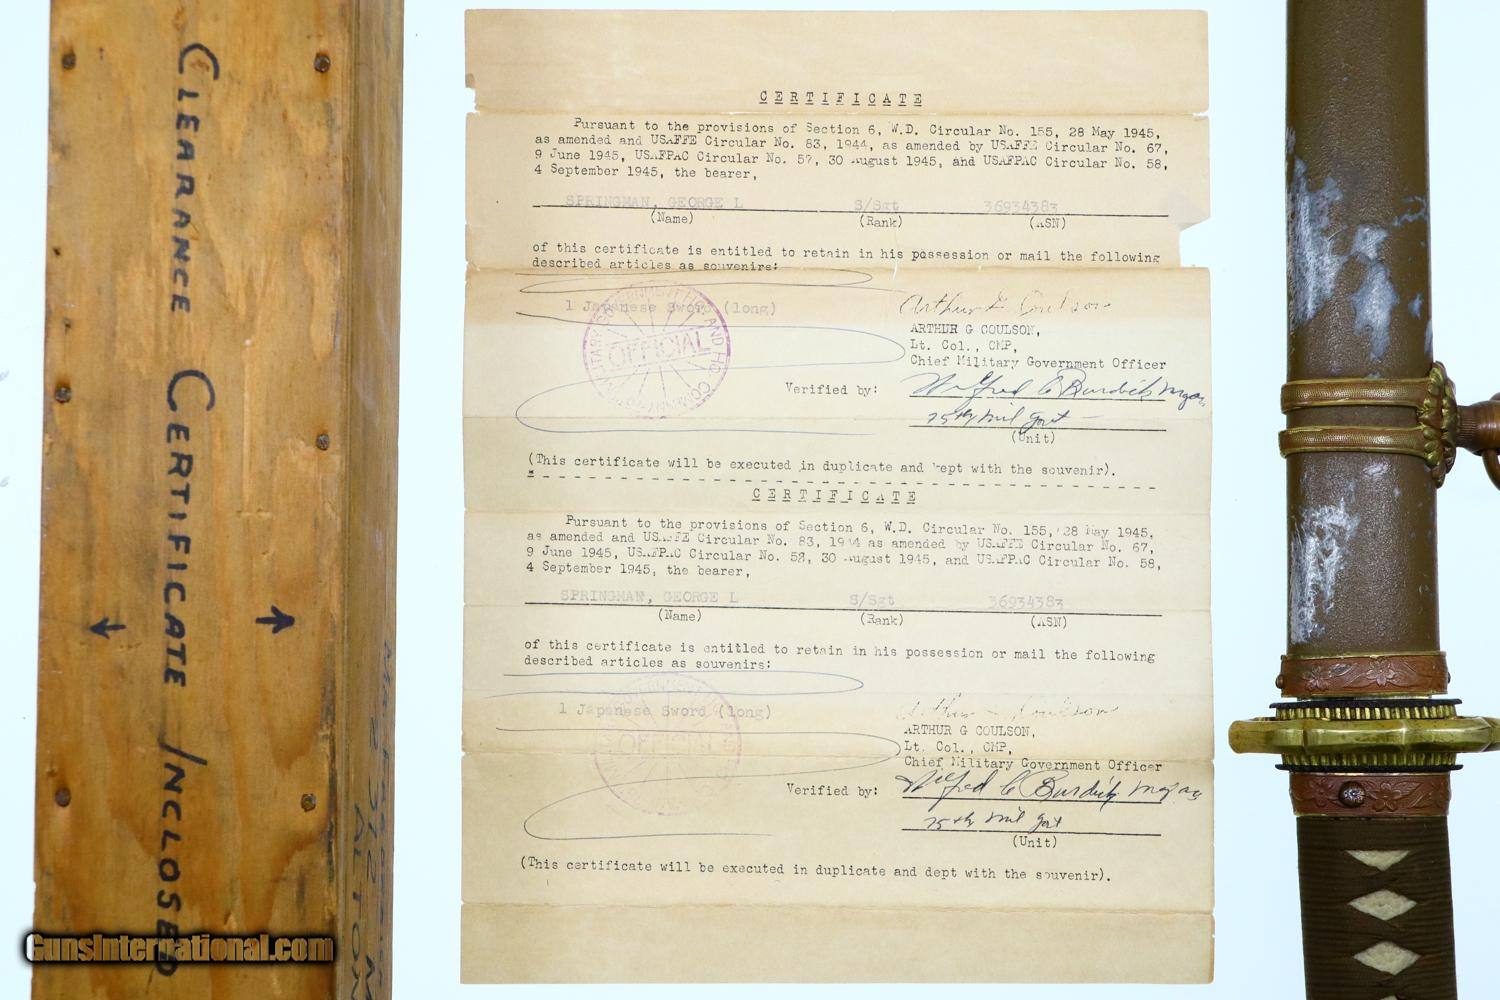 CLEARANCE CERTIFICATE INCLOSED
312
ALTON
GunsInternational.com
CERTIFICATE
Pursuant to the provisions of Section 6, W.D. Circular No. 155, 28 May 1945,
as amended and USAFFE Circular No. 83, 1944, as amended by USAFFE Circular No. 67,
9 June 1945, USAFPAC Circular No. 57, 30 August 1945, and USAFPAC Circular No. 58,
4 September 1945, the bearer,
SPRINGMAN, GEORGE L S/Sgt 36934383
(Name) (Rank) (ASN)
of this certificate is entitled to retain in his possession or mail the following
described articles as souvenirs:
1 Japanese Sword (long)
OFFICIAL
Arthur G Coulson
ARTHUR G COULSON,
Lt. Col., CMP,
Chief Military Government Officer
Verified by: Wilfred C Burdick
75th Mil Govt
(Unit)
(This certificate will be executed in duplicate and kept with the souvenir).
CERTIFICATE
Pursuant to the provisions of Section 6, W.D. Circular No. 155, 28 May 1945,
as amended and USAFFE Circular No. 83, 1944 as amended by USAFFE Circular No. 67,
9 June 1945, USAFPAC Circular No. 58, 30 August 1945, and USAFPAC Circular No. 58,
4 September 1945, the bearer,
SPRINGMAN, GEORGE L S/Sgt 36934383
(Name) (Rank) (ASN)
of this certificate is entitled to retain in his possession or mail the following
described articles as souvenirs:
1 Japanese Sword (long)
OFFICIAL
Arthur G Coulson
ARTHUR G COULSON,
Lt. Col., CMP,
Chief Military Government Officer
Verified by: Wilfred C Burdick
75th Mil Govt
(Unit)
(This certificate will be executed in duplicate and dept with the souvenir).